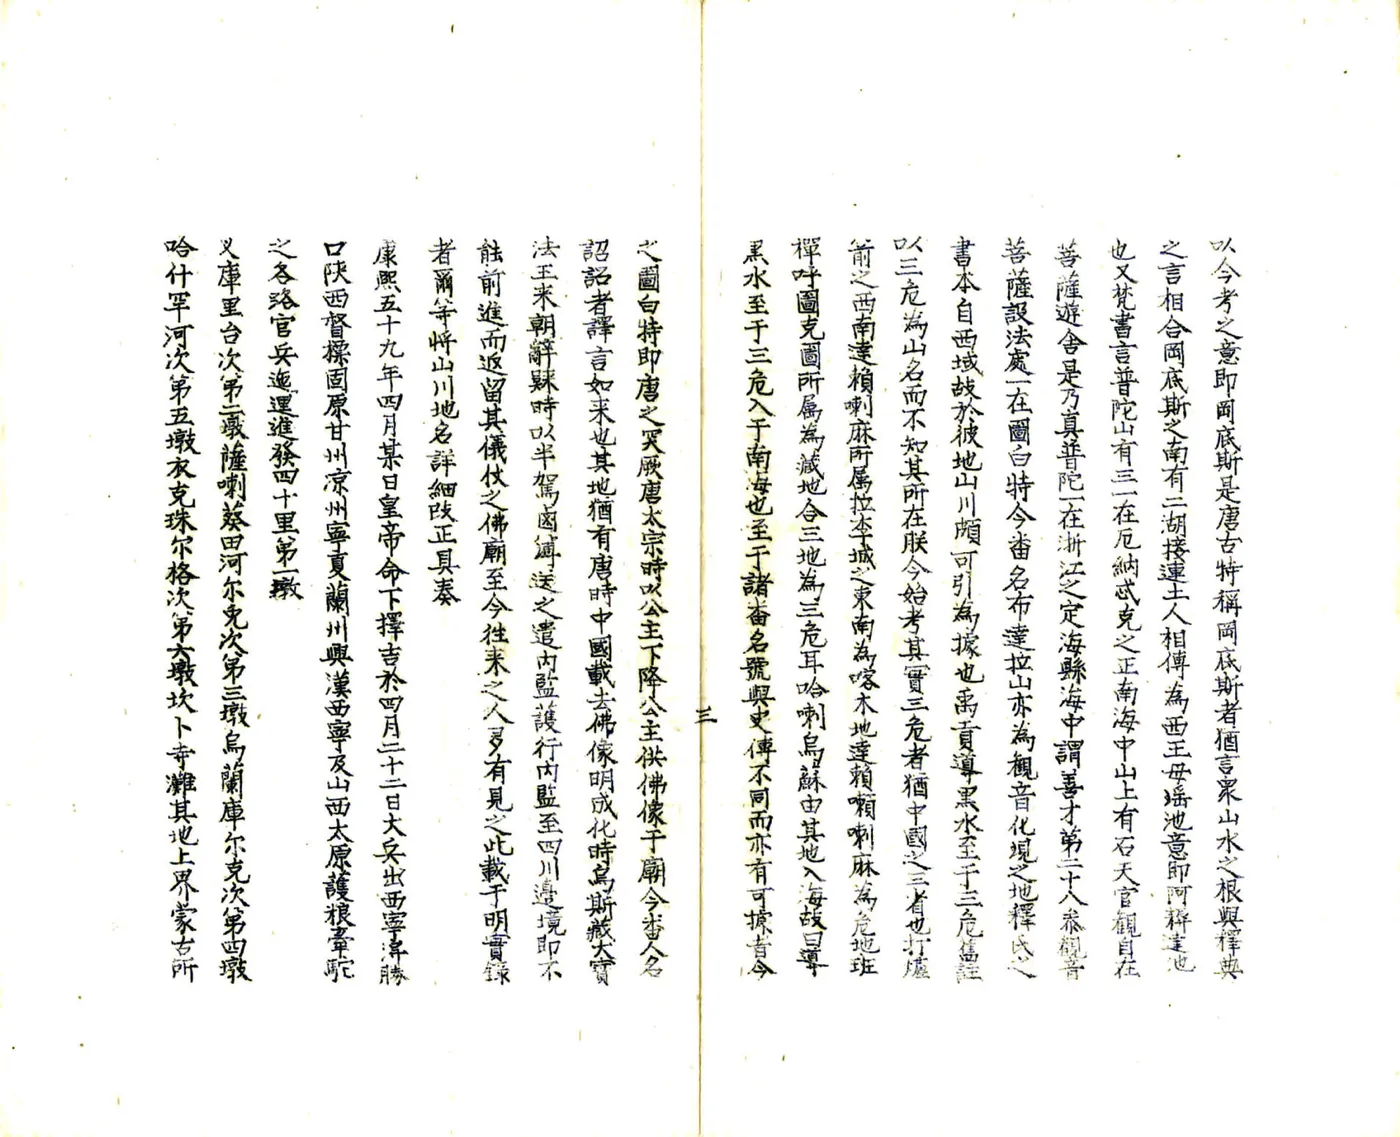 以今考之意即岡底斯是唐古特稱岡底斯者猶言衆山水之根與釋典
之言相合岡底斯之南有二湖接連土人相傳為西王母瑤池意即阿耨達池
也又梵書言普陀山有三一在厄納忒克之正南海中山上有石天宮觀自在
菩薩遊舍是乃真普陀一在浙江之定海縣海中謂善才第二十八參觀音
菩薩說法處一在圖白特今番名布達拉山亦為觀音化現之地釋氏之
書本自西域故於彼地山川頗可引為據也禹貢導黑水至于三危舊註
以三危為山名而不知其所在朕今始考其實三危者猶中國之三省也打爐
箭之西南達賴喇麻所属拉李城之東南為喀木地達賴喇麻為危地班
禪呼圖克圖所属為藏地合三地為三危耳哈喇烏蘇由其地入海故曰導
黑水至于三危入于南海也至于諸番名號與史傳不同而亦有可據者今
三
之圖白特即唐之突厥唐太宗時以公主下降公主供佛像于廟今番人名
詔詔者譯言如来也其地猶有唐時中國載去佛像明成化時烏斯藏大寶
法王来朝辭歸時以半駕鹵簿送之遣内監護行内監至四川邊境即不
能前進而返留其儀仗之佛廟至今往来之人多有見之此載于明實錄
者爾等將山川地名詳細改正具奏
康熙五十九年四月某日皇帝命下擇吉於四月二十二日大兵出西寧
口陝西督標固原甘州凉州寧夏蘭州興漢西寧及山西太原護粮牽駝
之各路官兵迤邐進發四十里第一墩
又庫里台次第二墩薩喇葵田河尔兎次第三墩烏蘭庫尔克次第四墩
哈什罕河次第五墩衣克珠尔格次第六墩坎卜寺灘其地上界蒙古所